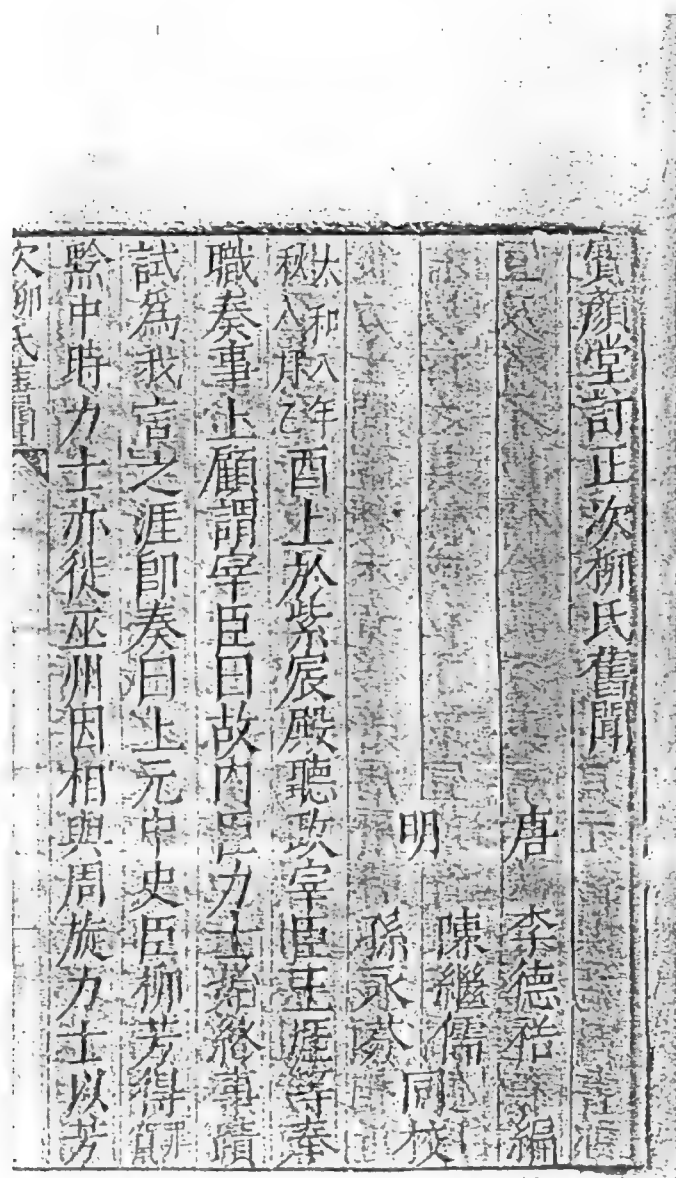 寶顏堂訂正次柳氏舊聞
唐 李德裕 編
明 陳繼儒
孫永芬 同校
太和八年秋八月乙酉上於紫宸殿聽政宰臣王涯等奉
職奏事上顧謂宰臣曰故內臣力士終始事蹟
試爲我言之涯即奏曰上元中史臣柳芳得罪
黔中時力士亦徙巫州因相與周旋力士以芳
次柳氏舊聞